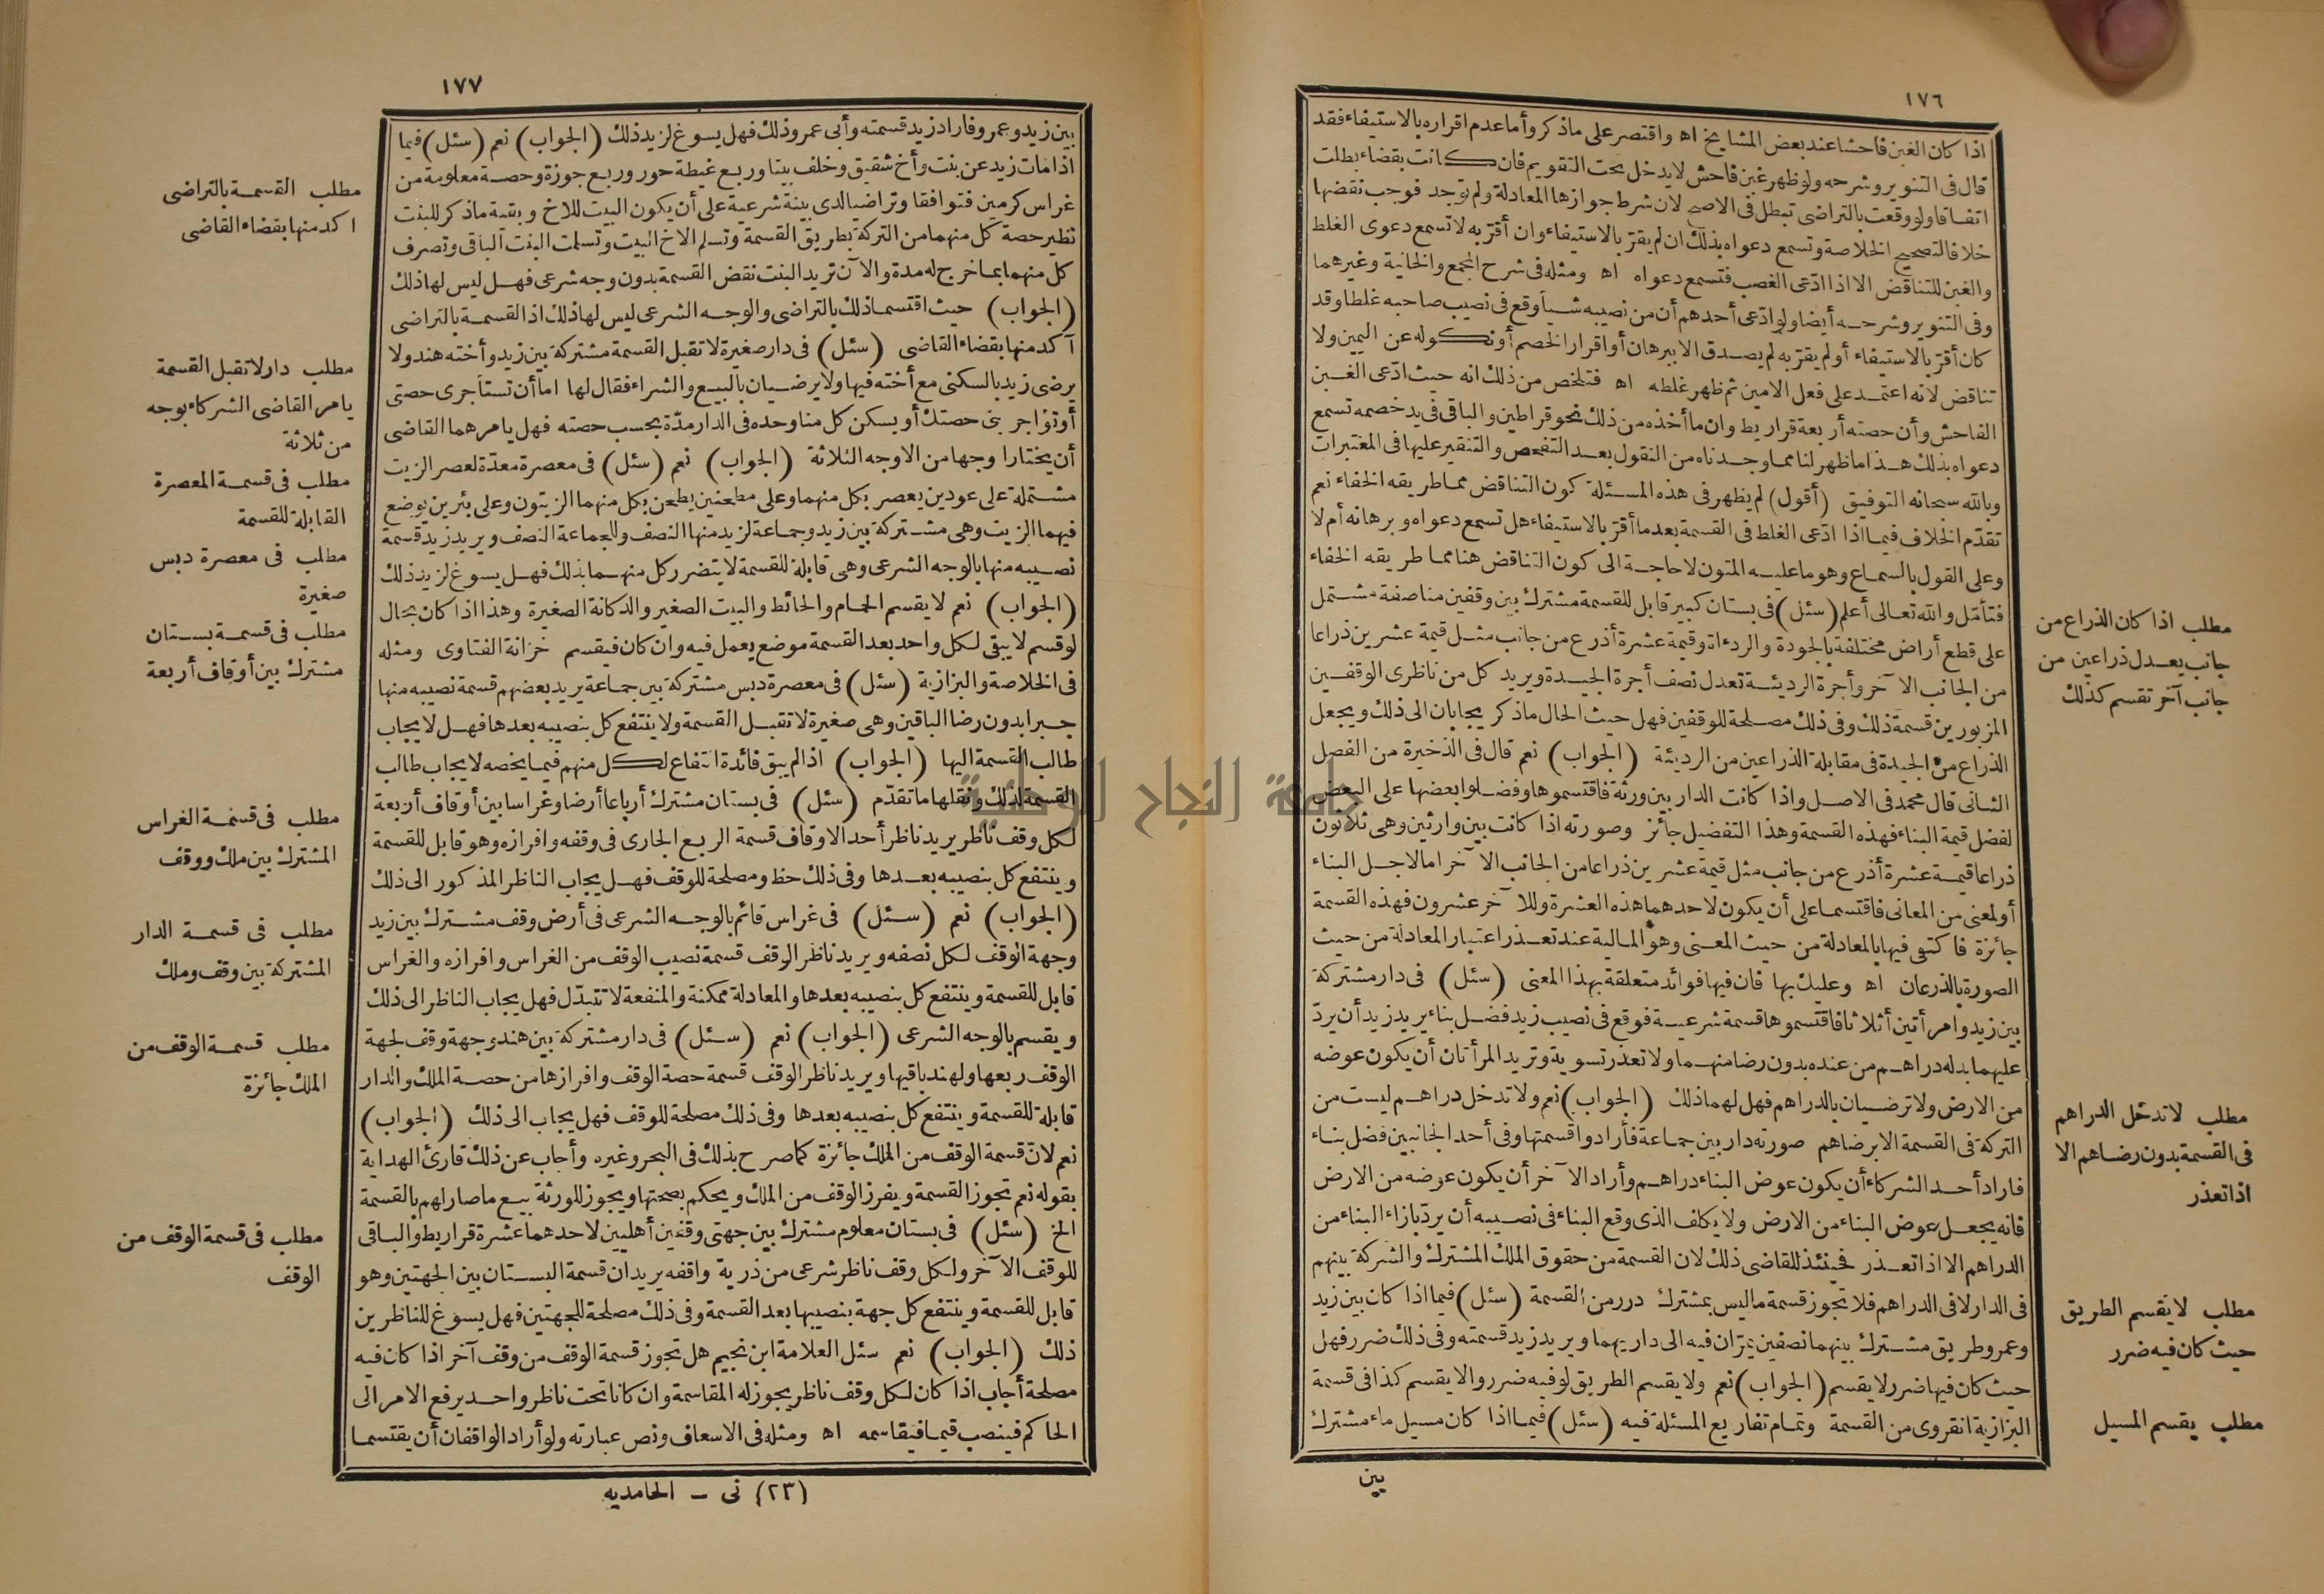 ١٧٦
اذا كان الغبن فاحشا عند بعض المشايخ اه واقتصر على ماذكر وأما عدم اقراره بالاستيفاء فقد
قال فى التنوير وشرحه ولو ظهر غبن فاحش لا يدخل تحت التقويم فان كانت بقضاء بطلت
اتفاقا ولو وقعت بالتراضى تبطل فى الاصح لان شرط جوازها المعادلة ولم توجد فوجب نقضها
خلافا لتصحيح الخلاصة وتسمع دعواه بذلك ان لم يقرّ بالاستيفاء وان أقرّ به لا تسمع دعوى الغلط
والغبن للتناقض الا اذا ادّعى الغصب فتسمع دعواه اه ومثله فى شرح المجمع والخانية وغيرهما
وفى التنوير وشرحه أيضا ولو ادّعى أحدهم أن من نصيبه شيأ وقع فى نصيب صاحبه غلطا وقد
كان أقرّ بالاستيفاء أو لم يقرّ به لم يصدق الا ببرهان أو اقرار الخصم أو نكوله عن اليمين ولا
تناقض لانه اعتمد على فعل الامين ثم ظهر غلطه اه فتلخص من ذلك انه حيث ادّعى الغبن
الفاحش وأن حصته أربعة قراريط وان ما أخذه من ذلك نحو قراطين والباقى فى يد خصمه تسمع
دعواه بذلك هذا ما ظهر لنا مما وجدناه من النقول بعد التفحص والتنقير عليها فى المعتبرات
وبالله سبحانه التوفيق (أقول) لم يظهر فى هذه المسئلة كون التناقض مما طريقه الخفاء نعم
تقدّم الخلاف فيما اذا ادّعى الغلط فى القسمة بعد ما أقرّ بالاستيفاء هل تسمع دعواه وبرهانه أم لا
وعلى القول بالسماع وهو ما عليه المتون لا حاجة الى كون التناقض هنا مما طريقه الخفاء
فتأمّل والله تعالى أعلم (سئل) فى بستان كبير قابل للقسمة مشترك بين وقفين مناصفة مشتمل
على قطع أراض مختلفة بالجودة والرداءة وقيمة عشرة أذرع من جانب مثل قيمة عشرين ذراعا
من الجانب الآخر وأجرة الرديئة تعدل نصف أجرة الجيدة ويريد كل من ناظرى الوقفين
المزبورين قسمة ذلك وفى ذلك مصلحة للوقفين فهل حيث الحال ماذكر يجابان الى ذلك ويجعل
الذراع من الجيدة فى مقابلة الذراعين من الرديئة (الجواب) نعم قال فى الذخيرة من الفصل
الثانى قال محمد فى الاصل واذا كانت الدار بين ورثة فاقتسموها وفضلوا بعضها على البعض
لفضل قيمة البناء فهذه القسمة وهذا التفضيل جائز وصورته اذا كانت بين وارثين وهى ثلاثون
ذراعا قيمة عشرة أذرع من جانب مثل قيمة عشرين ذراعا من الجانب الآخر اما لاجل البناء
أو لمعنى من المعانى فاقتسما على أن يكون لاحدهما هذه العشرة وللآخر عشرون فهذه القسمة
جائزة فاكتفى فيها بالمعادلة من حيث المعنى وهو المالية عند تعذر اعتبار المعادلة من حيث
الصورة بالذرعان اه وعليك بها فان فيها فوائد متعلقة بهذا المعنى (سئل) فى دار مشتركة
بين زيد وامرأتين أثلاثا فاقتسموها قسمة شرعية فوقع فى نصيب زيد فضل بناء يريد زيد أن يردّ
عليهما بدله دراهم من عنده بدون رضا منهما ولا تعذر تسوية وتريد المرأتان أن يكون عوضه
من الارض ولا ترضيان بالدراهم فهل لهما ذلك (الجواب) نعم ولا تدخل دراهم ليست من
التركة فى القسمة الا برضاهم صورته دار بين جماعة فأرادوا قسمتها وفى أحد الجانبين فضل بناء
فاراد أحد الشركاء أن يكون عوض البناء دراهم وأراد الآخر أن يكون عوضه من الارض
فانه يجعل عوض البناء من الارض ولا يكلف الذى وقع البناء فى نصيبه أن يردّ بازاء البناء من
الدراهم الا اذا تعذر فحينئذ للقاضى ذلك لان القسمة من حقوق الملك المشترك والشركة بينهم
فى الدار لا فى الدراهم فلا تجوز قسمة ما ليس بمشترك درر من القسمة (سئل) فيما اذا كان بين زيد
وعمرو طريق مشترك بينهما نصفين يمرّان فيه الى داريهما ويريد زيد قسمته وفى ذلك ضرر فهل
حيث كان فيها ضرر لا يقسم (الجواب) نعم ولا يقسم الطريق لو فيه ضرر والا يقسم كذا فى قسمة
البزازية انقروى من القسمة وتمام تفاريع المسئلة فيه (سئل) فيما اذا كان مسيل ماء مشترك
بين
مطلب اذا كان الذراع من
جانب يعدل ذراعين من
جانب آخر تقسم كذلك
مطلب لا تدخل الدراهم
فى القسمة بدون رضاهم الا
اذا تعذر
مطلب لا يقسم الطريق
حيث كان فيه ضرر
مطلب يقسم المسيل
١٧٧
بين زيد وعمرو فاراد زيد قسمته وأبى عمرو ذلك فهل يسوغ لزيد ذلك (الجواب) نعم (سئل) فيما
اذا مات زيد عن بنت وأخ شقيق وخلف بيتا وربع غيطة حور وربع جوزة وحصة معلومة من
غراس كرمين فتوافقا وتراضيا لدى بينة شرعية على أن يكون البيت للاخ وبقية ماذكر للبنت
نظير حصة كل منهما من التركة بطريق القسمة وتسلم الاخ البيت وتسلمت البنت الباقى وتصرف
كل منهما بما خرج له مدة والآن تريد البنت نقض القسمة بدون وجه شرعى فهل ليس لها ذلك
(الجواب) حيث اقتسما ذلك بالتراضى والوجه الشرعى ليس لها ذلك اذ القسمة بالتراضى
آكد منها بقضاء القاضى (سئل) فى دار صغيرة لا تقبل القسمة مشتركة بين زيد وأخته هند ولا
يرضى زيد بالسكنى مع أخته فيها ولا يرضيان بالبيع والشراء فقال لها اما أن تستأجرى حصتى
أو تؤاجرينى حصتك أو يسكن كل منا وحده فى الدار مدّة بحسب حصته فهل يامرهما القاضى
أن يختارا وجها من الاوجه الثلاثة (الجواب) نعم (سئل) فى معصرة معدّة لعصر الزيت
مشتملة على عودين يعصر بكل منهما وعلى مطحنين يطحن بكل منهما الزيتون وعلى بئرين يوضع
فيهما الزيت وهى مشتركة بين زيد وجماعة لزيد منها النصف وللجماعة النصف ويريد زيد قسمة
نصيبه منها بالوجه الشرعى وهى قابلة للقسمة لا يتضرر كل منهما بذلك فهل يسوغ لزيد ذلك
(الجواب) نعم لا يقسم الحمام والحائط والبيت الصغير والدكانة الصغيرة وهذا اذا كان بحال
لو قسم لا يبقى لكل واحد بعد القسمة موضع يعمل فيه وان كان فيقسم خزانة الفتاوى ومثله
فى الخلاصة والبزازية (سئل) فى معصرة دبس مشتركة بين جماعة يريد بعضهم قسمة نصيبه منها
جبرا بدون رضا الباقين وهى صغيرة لا تقبل القسمة ولا ينتفع كل بنصيبه بعدها فهل لا يجاب
طالب القسمة اليها (الجواب) اذا لم يبق فائدة انتفاع لكل منهم فيما يخصه لا يجاب طالب
القسمة لذلك ونقلها ما تقدّم (سئل) فى بستان مشترك أرباعا أرضا وغراسا بين أوقاف أربعة
لكل وقف ناظر يريد ناظر أحد الاوقاف قسمة الربع الجارى فى وقفه وافرازه وهو قابل للقسمة
وينتفع كل بنصيبه بعدها وفى ذلك حظ ومصلحة للوقف فهل يجاب الناظر المذكور الى ذلك
(الجواب) نعم (سئل) فى غراس قائم بالوجه الشرعى فى أرض وقف مشترك بين زيد
وجهة الوقف لكل نصفه ويريد ناظر الوقف قسمة نصيب الوقف من الغراس وافرازه والغراس
قابل للقسمة وينتفع كل بنصيبه بعدها والمعادلة ممكنة والمنفعة لا تتبدّل فهل يجاب الناظر الى ذلك
ويقسم بالوجه الشرعى (الجواب) نعم (سئل) فى دار مشتركة بين هند وجهة وقف لجهة
الوقف ربعها ولهند باقيها ويريد ناظر الوقف قسمة حصة الوقف وافرازها من حصة الملك والدار
قابلة للقسمة وينتفع كل بنصيبه بعدها وفى ذلك مصلحة للوقف فهل يجاب الى ذلك (الجواب)
نعم لانّ قسمة الوقف من الملك جائزة كما صرح بذلك فى البحر وغيره وأجاب عن ذلك قارئ الهداية
بقوله نعم تجوز القسمة ويفرز الوقف من الملك ويحكم بصحتها ويجوز للورثة بيع ما صار لهم بالقسمة
الخ (سئل) فى بستان معلوم مشترك بين جهتى وقفين أهليين لاحدهما عشرة قراريط والباقى
للوقف الآخر ولكل وقف ناظر شرعى من ذرية واقفه يريدان قسمة البستان بين الجهتين وهو
قابل للقسمة وينتفع كل جهة بنصيبها بعد القسمة وفى ذلك مصلحة للجهتين فهل يسوغ للناظرين
ذلك (الجواب) نعم سئل العلامة ابن نجيم هل تجوز قسمة الوقف من وقف آخر اذا كان فيه
مصلحة أجاب اذا كان لكل وقف ناظر يجوز له المقاسمة وان كانا تحت ناظر واحد يرفع الامر الى
الحاكم فينصب قيما فيقاسمه اه ومثله فى الاسعاف ونص عبارته ولو أراد الواقفان أن يقتسما
(٢٣) نى – الحامديه
مطلب القسمة بالتراضى
اكد منها بقضاء القاضى
مطلب دار لا تقبل القسمة
يامر القاضى الشركاء بوجه
من ثلاثة
مطلب فى قسمة المعصرة
القابلة للقسمة
مطلب فى معصرة دبس
صغيرة
مطلب فى قسمة بستان
مشترك بين أوقاف أربعة
مطلب فى قسمة الغراس
المشترك بين ملك ووقف
مطلب فى قسمة الدار
المشتركة بين وقف وملك
مطلب قسمة الوقف من
الملك جائزة
مطلب فى قسمة الوقف من
الوقف
جامعة النجاح الوطنية